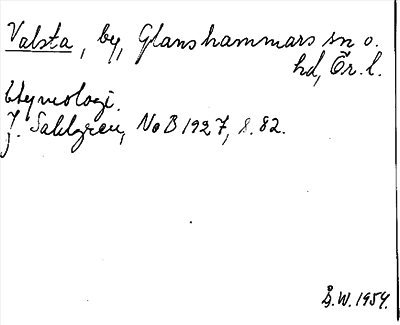 Valsta, by, Glanshammars sn o.
hd, Ör. l.
Etymologi.
J. Sahlgren, NoB 1927, s. 82.
Å.W. 1954.